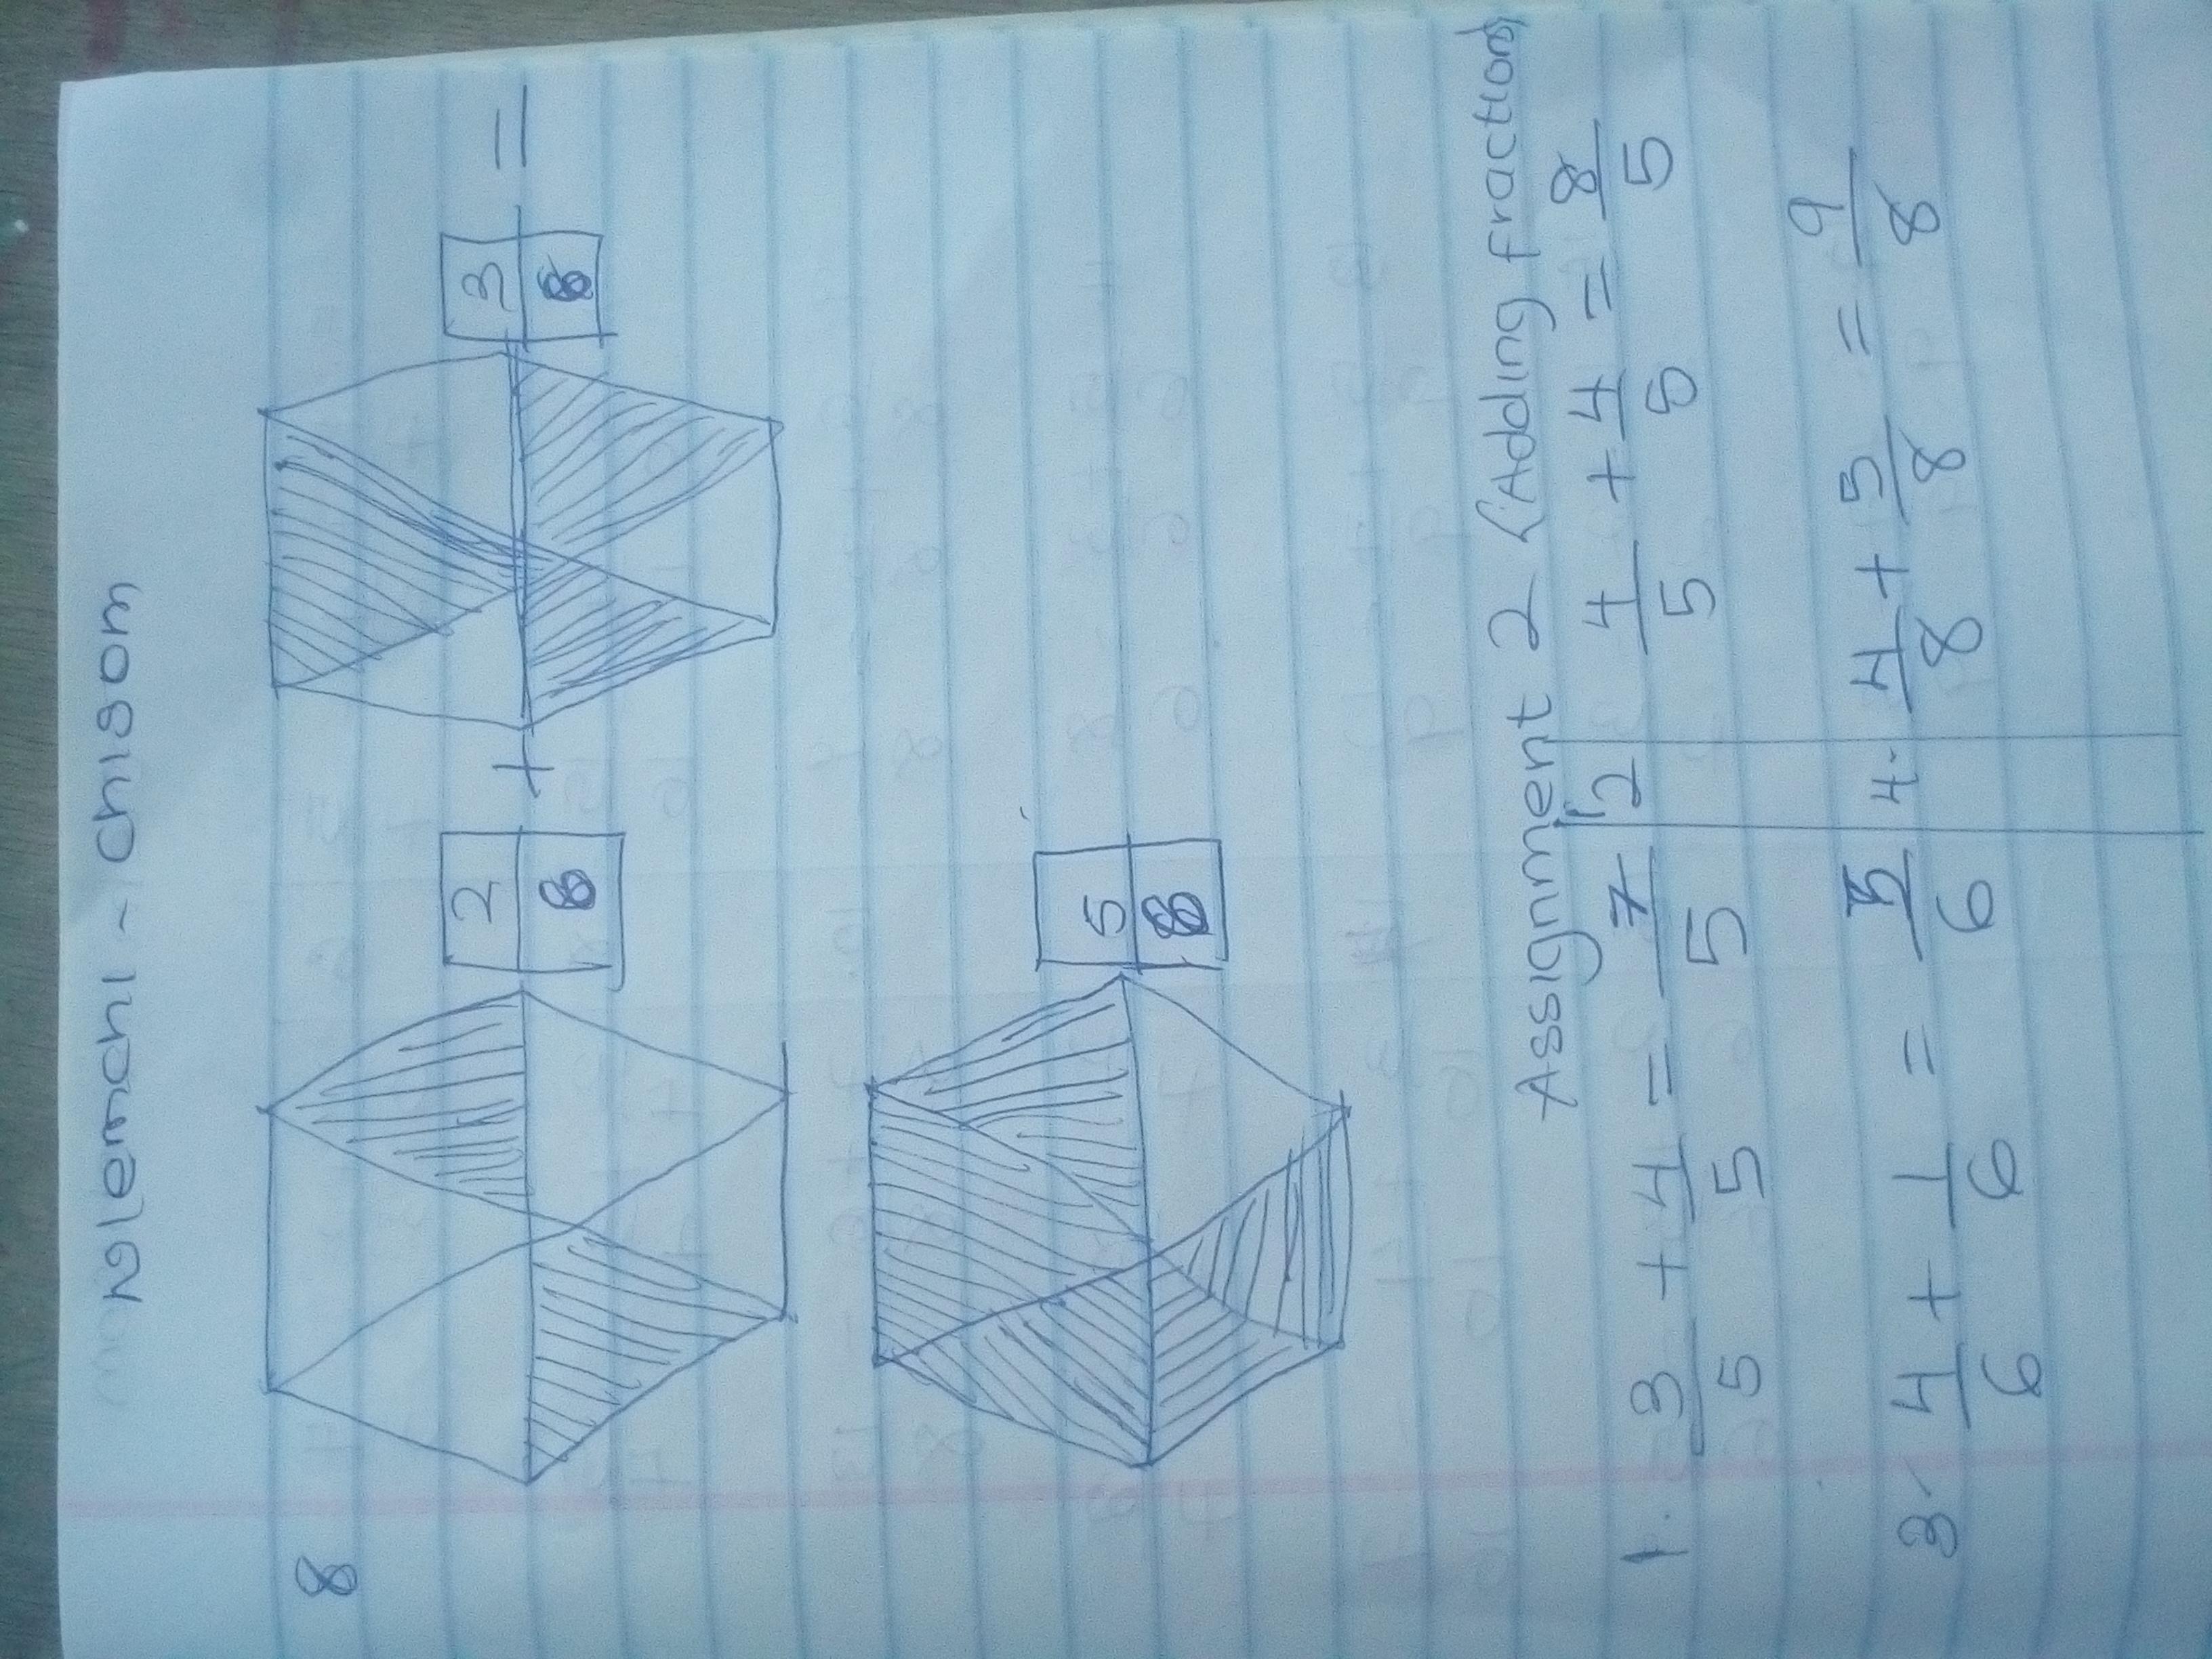 Nglemchi - Chisom
8
2/6 + 3/6 =
5/6
Assignment 2 (Adding fractions)
1. 3/5 + 4/5 = 7/5 2 4/5 + 4/5 = 8/5
3. 4/6 + 1/6 = 5/6 4. 4/8 + 5/8 = 9/8